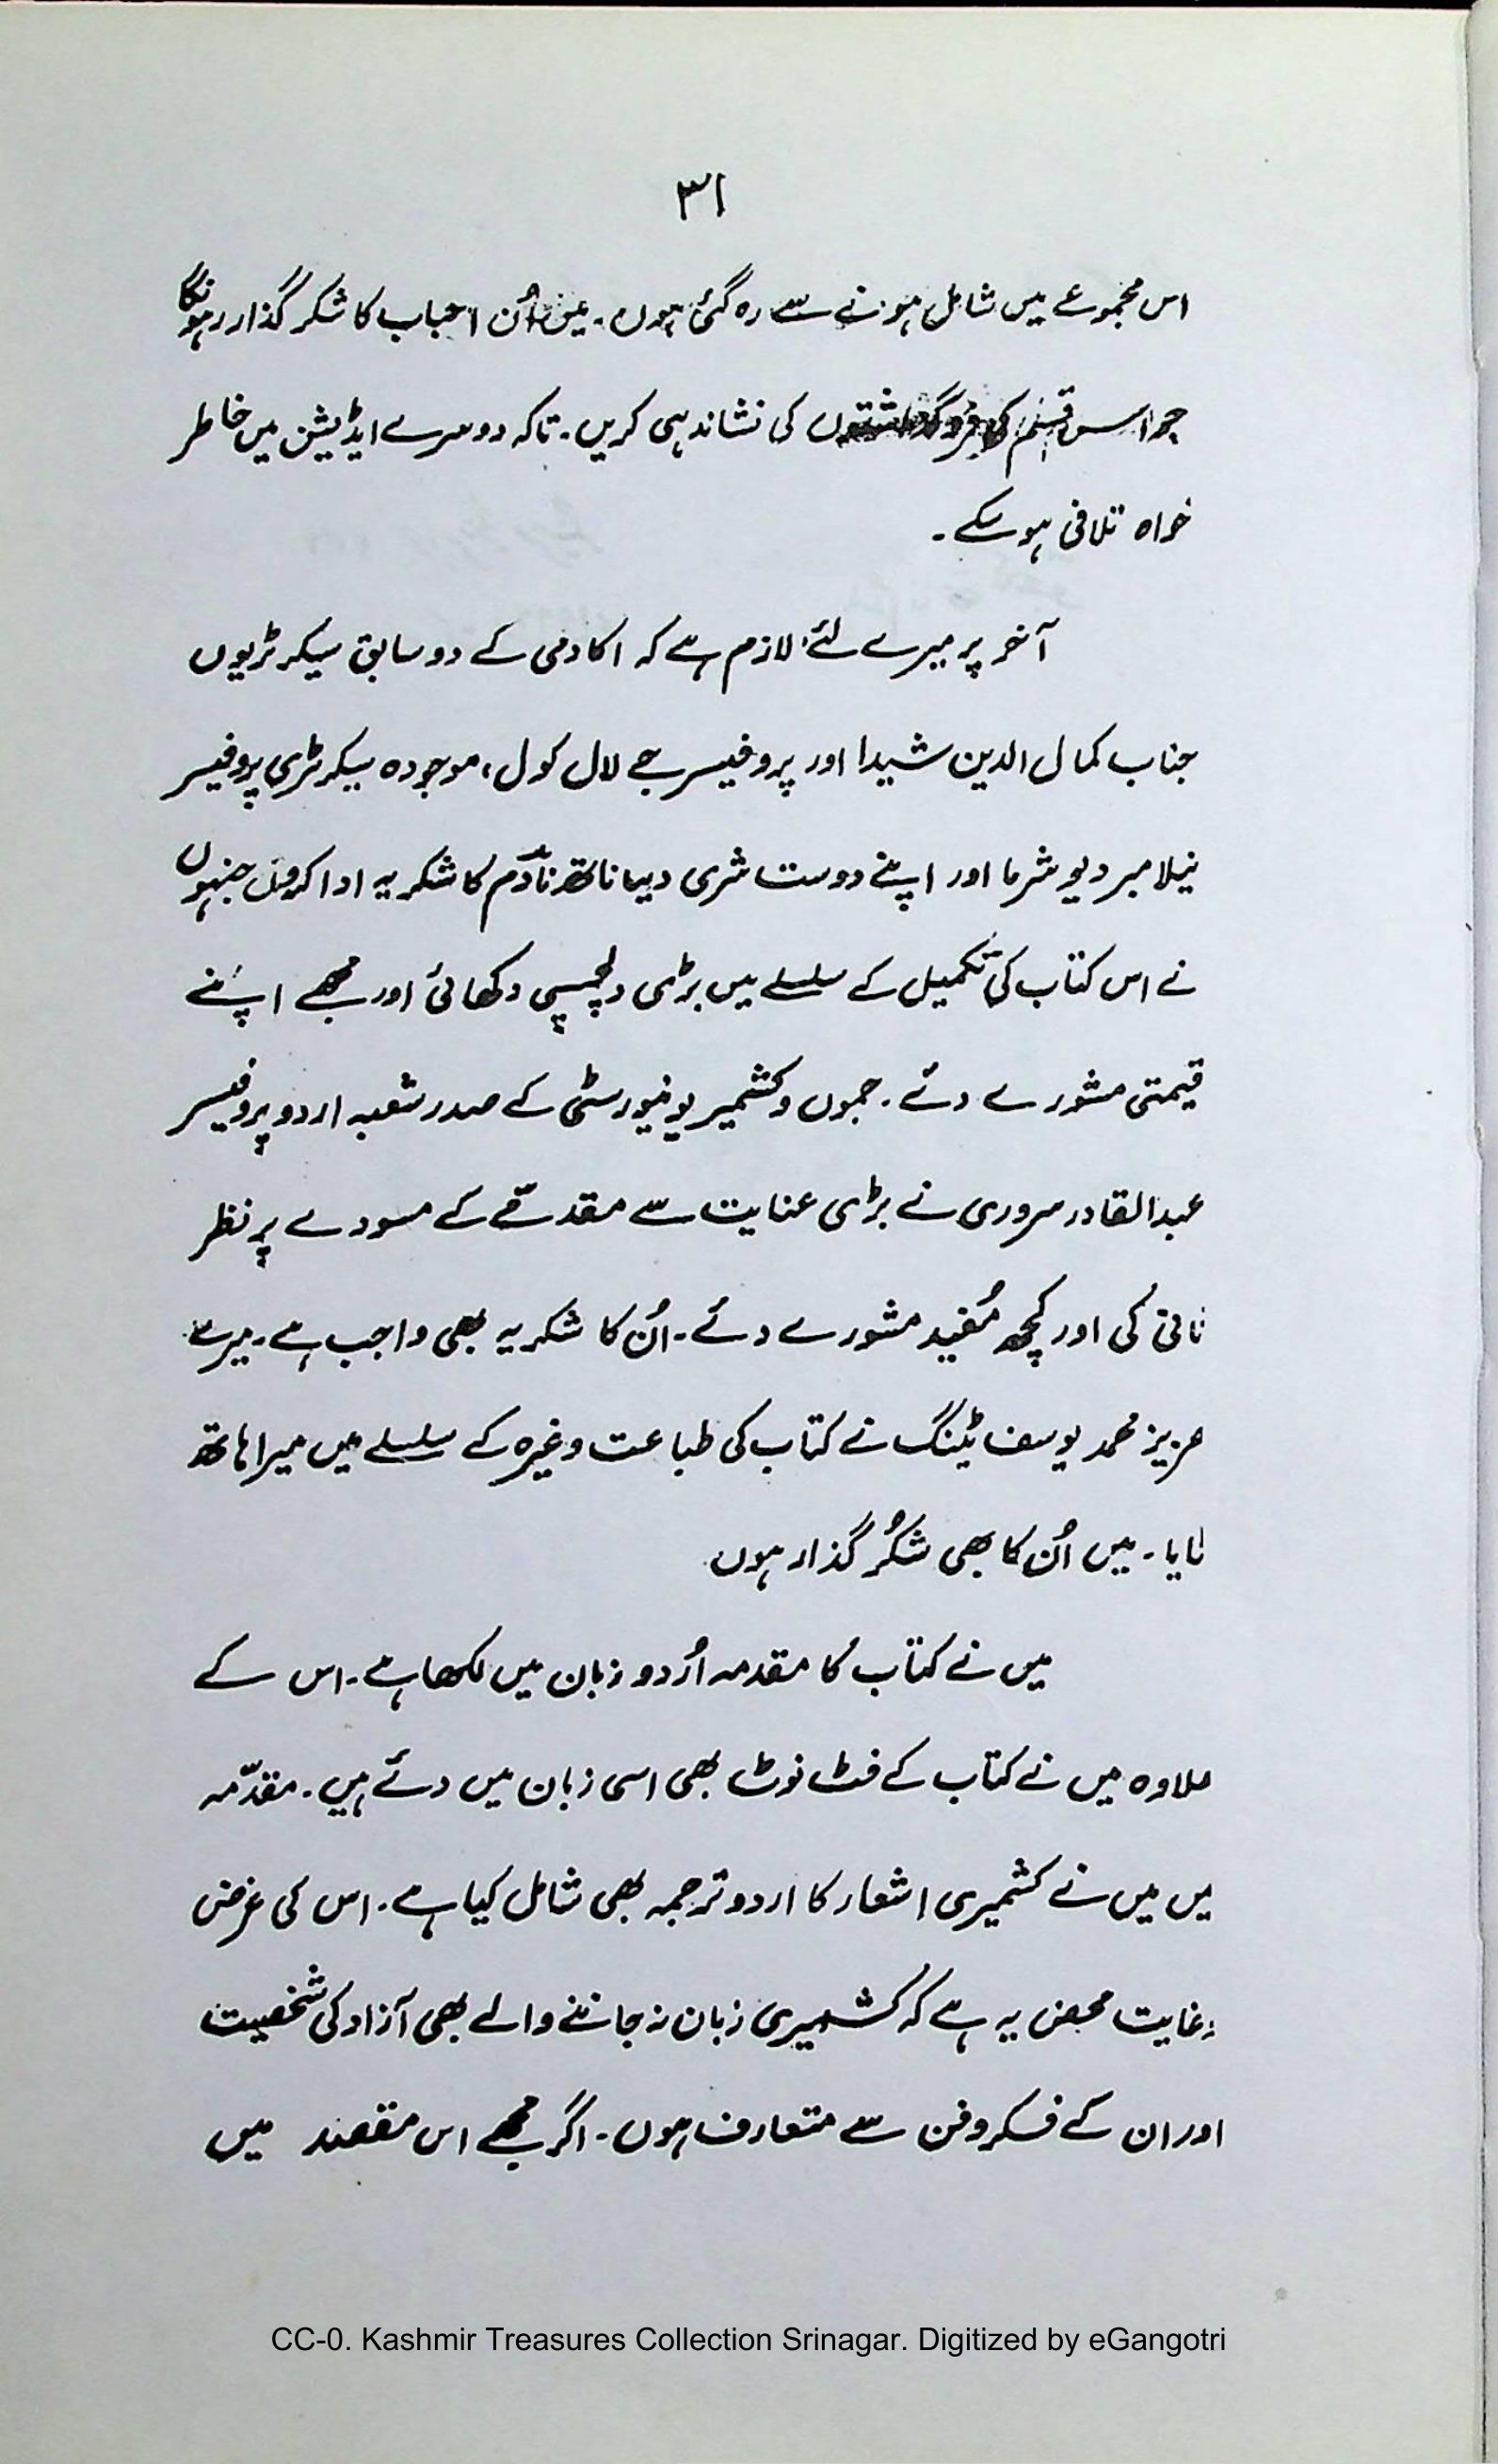 ۳۱
اس مجموعے میں شامل ہونے سے رہ گئی ہوں۔ میں اُن احباب کا شکر گذار رہونگا
جو اس قسم کی فروگذاشتوں کی نشاندہی کریں۔ تاکہ دوسرے ایڈیشن میں خاطر
خواہ تلافی ہو سکے۔
آخر پر میرے لئے لازم ہے کہ اکادمی کے دو سابق سیکرٹریوں
جناب کمال الدین شیدا اور پروفیسر جے لال کول، موجودہ سیکرٹری پروفیسر
نیلامبر دیو شرما اور اپنے دوست شری دینا ناتھ نادم کا شکریہ ادا کروں جنہوں
نے اس کتاب کی تکمیل کے سلسلے میں بڑی دلچسپی دکھائی اور مجھے اپنے
قیمتی مشورے دئے۔ جموں و کشمیر یونیورسٹی کے صدر شعبہ اردو پروفیسر
عبدالقادر سروری نے بڑی عنایت سے مقدمّے کے مسودے پر نظر
ثانی کی اور کچھ مُفید مشورے دئے۔ اُن کا شکریہ بھی واجب ہے۔ میرے
عزیز محمد یوسف ٹینگ نے کتاب کی طباعت وغیرہ کے سلسلے میں میرا ہاتھ
ٹایا۔ میں اُن کا بھی شکُر گذار ہوں
میں نے کتاب کا مقدمہ اُردو زبان میں لکھا ہے۔ اس کے
علاوہ میں نے کتاب کے فٹ نوٹ بھی اسی زبان میں دئے ہیں۔ مقدّمہ
میں میں نے کشمیری اشعار کا اردو ترجمہ بھی شامل کیا ہے۔ اس کی غرض
و غایت محض یہ ہے کہ کشمیری زبان نہ جاننے والے بھی آزاد کی شخصیت
اور ان کے فکر و فن سے متعارف ہوں۔ اگر مجھے اس مقصد میں
CC-0. Kashmir Treasures Collection Srinagar. Digitized by eGangotri